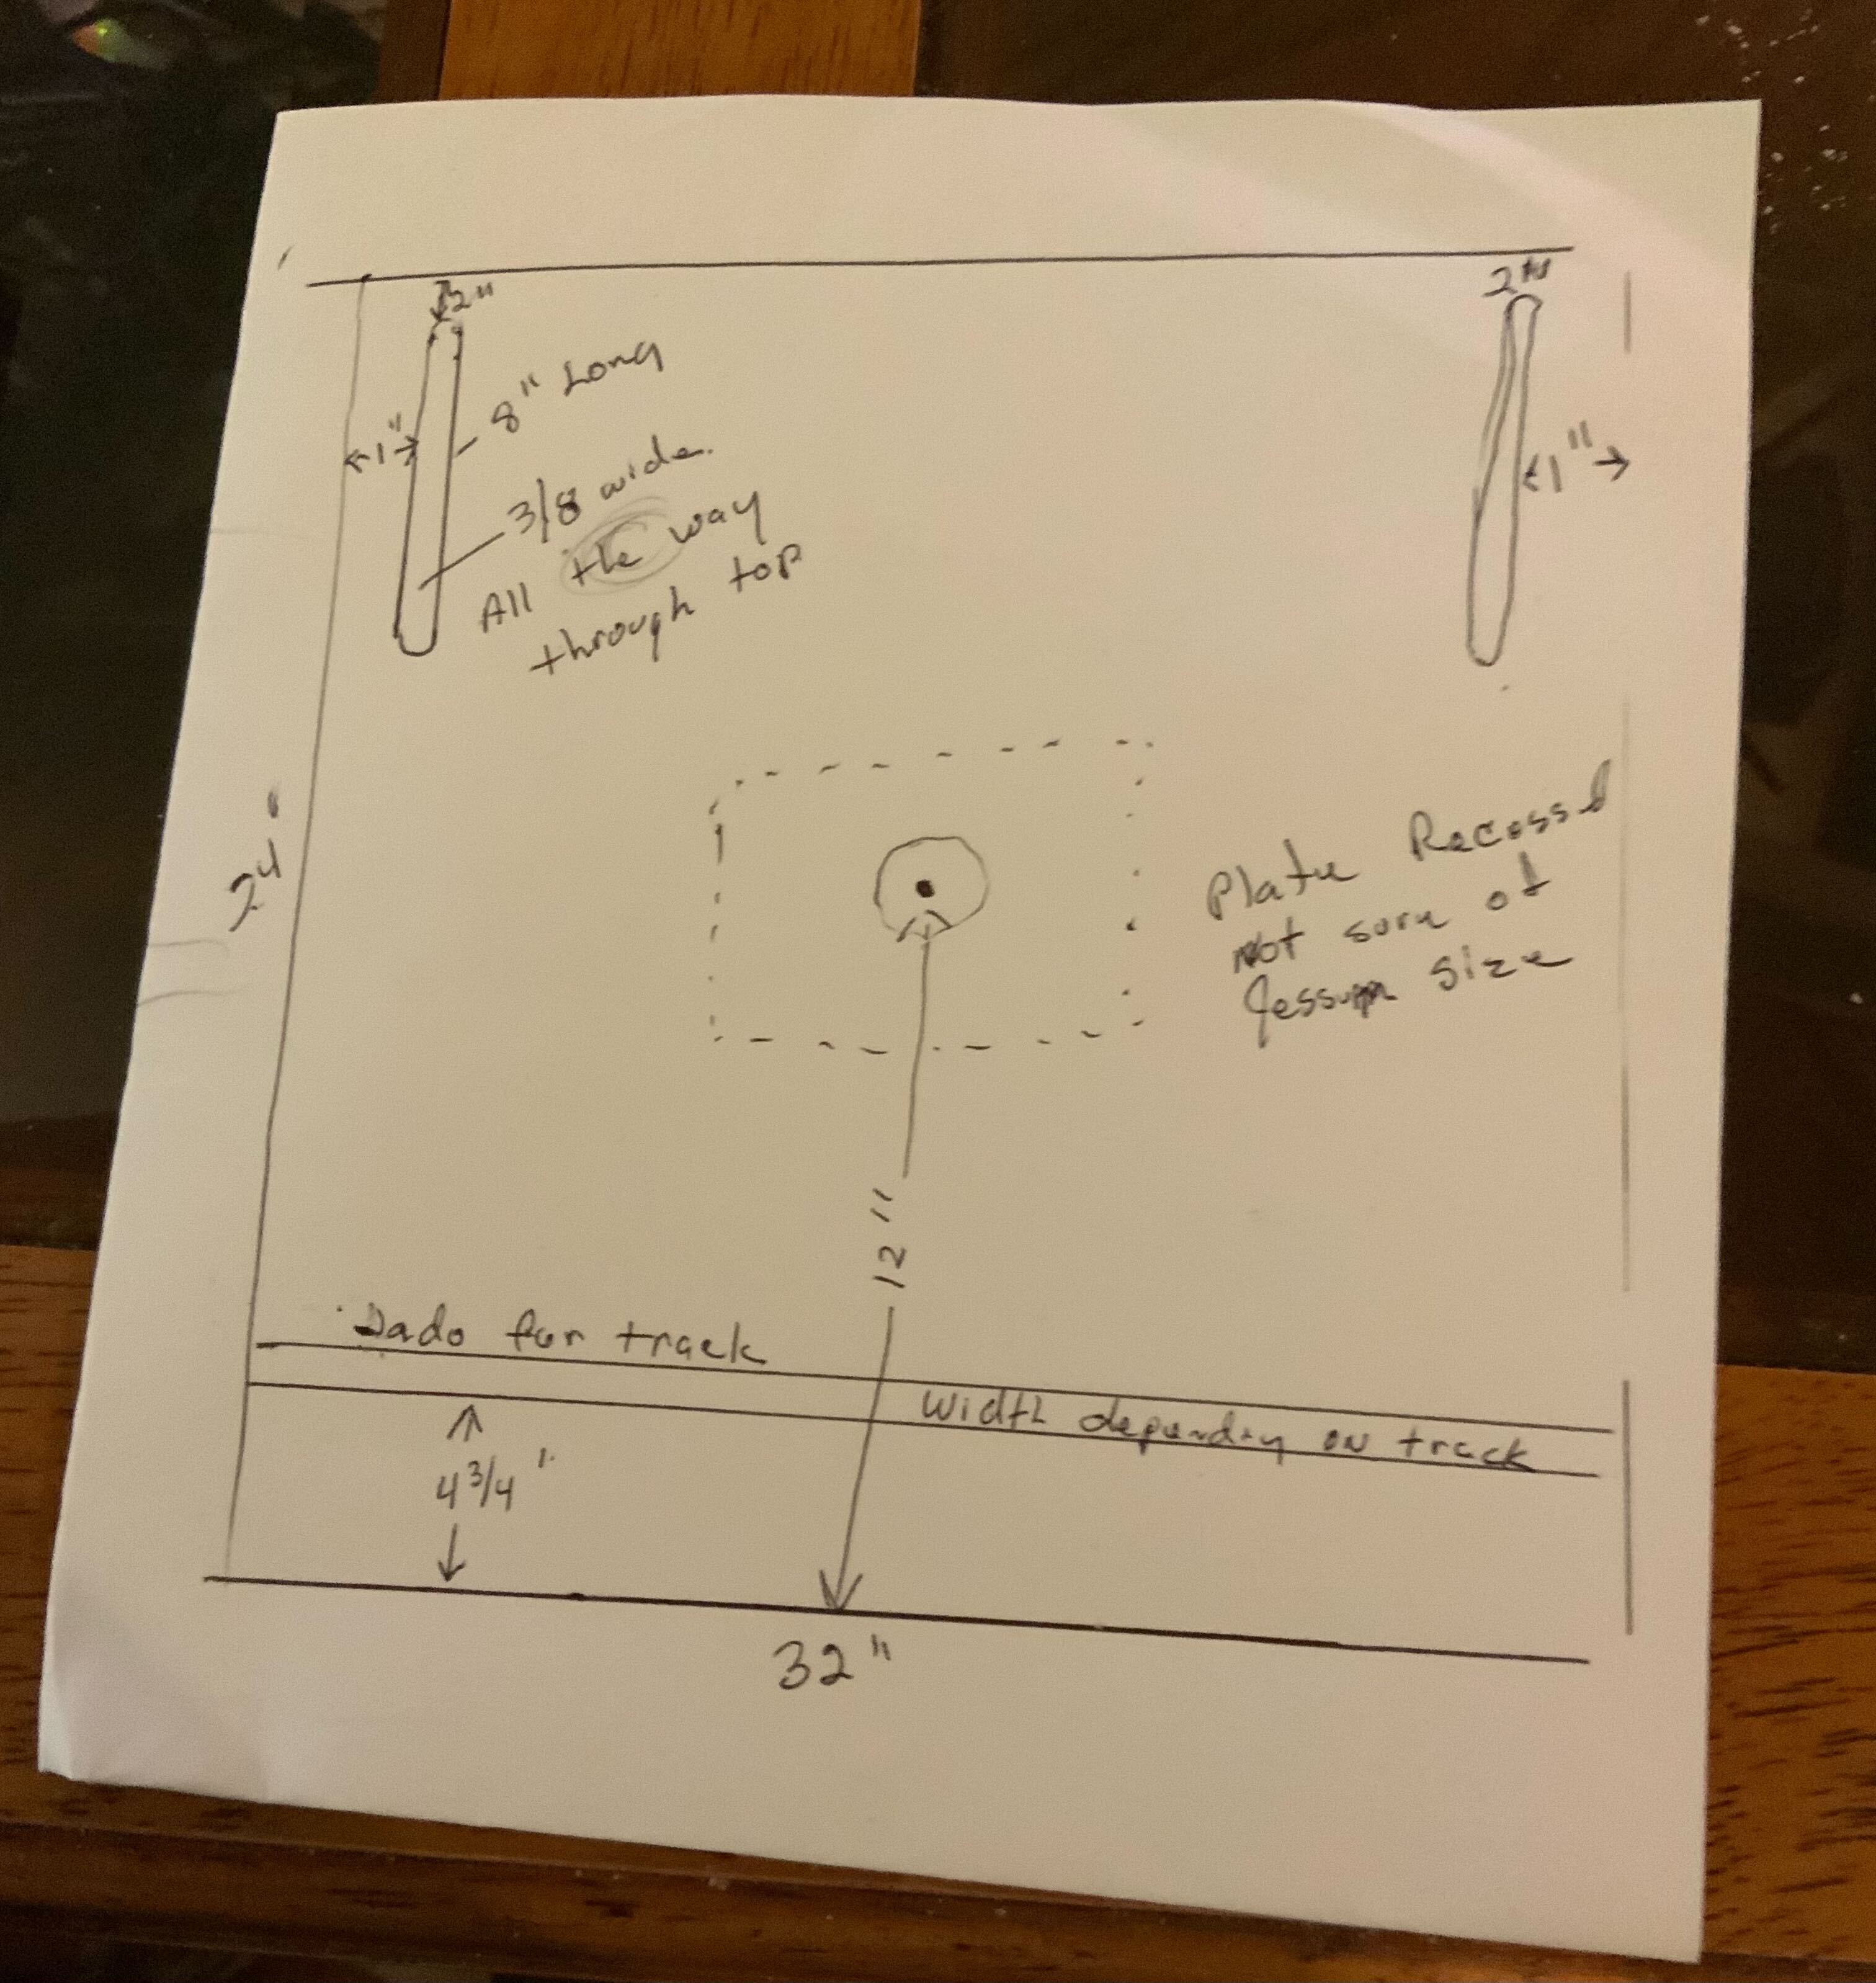 2"
2"
8" Long
1"
1"
3/8 wide.
All the way
through top
24"
Plate Recessed
not sure of
Jessum size
12"
Dado for track
Width depending on track
4 3/4"
32"